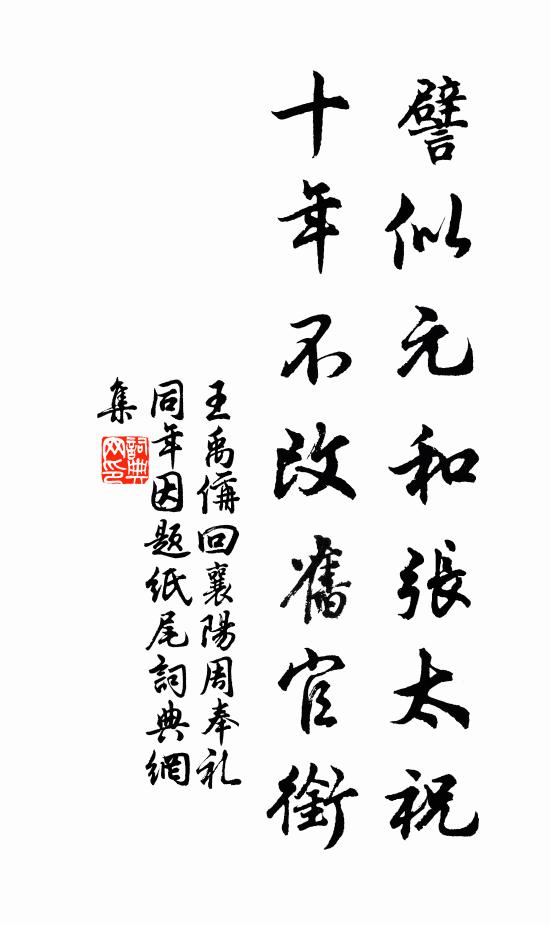 譬似元和張太祝
十年不改舊官銜
王禹偁回襄陽周奉礼
同年因题紙尾詞典網
集
詞典
网印